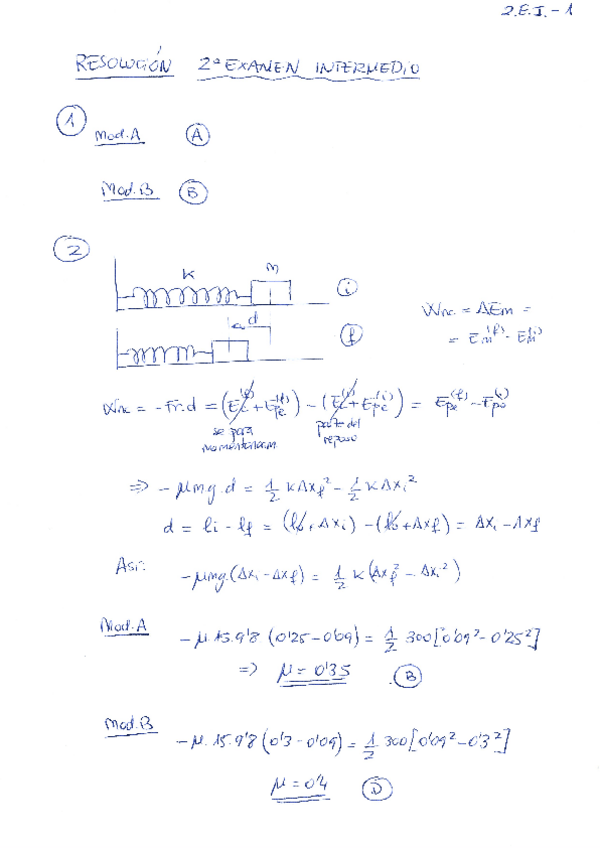 2.E.I.-1
RESOLUCIÓN 2º EXAMEN INTERMEDIO
1
Mod.A A
Mod.B B
2
K m
i
d
f
Wnc = ΔEm =
= Em(f) - Em(i)
Wnc = -Fr.d = (Ec(f) + Epe(f)) - (Ec(i) + Epe(i)) = Epe(f) - Epe(i)
se para parte del
reposo
=> - μmg.d = 1/2 KΔxf² - 1/2 KΔxi²
d = li - lf = (l0 + Δxi) - (l0 + Δxf) = Δxi - Δxf
Así:
-μmg.(Δxi - Δxf) = 1/2 K(Δxf² - Δxi²)
Mod.A
-μ.15.9'8 (0'25 - 0'09) = 1/2 300[0'09² - 0'25²]
=> μ = 0'35 B
Mod.B
-μ.15.9'8 (0'3 - 0'09) = 1/2 300[0'09² - 0'3²]
μ = 0'4 D